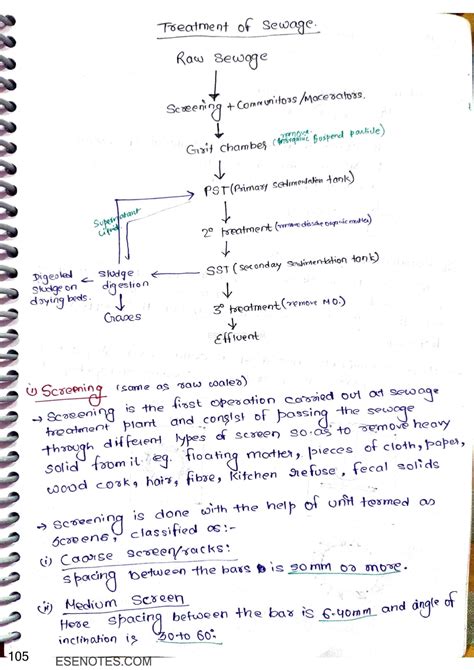 Treatment of Sewage.
Raw sewage
Screening + Comunitors/Macerators.
Grit chamber (remove inorganic suspend particle)
PST (Primary sedimentation tank)
Supernatant
Liquid
2° treatment (remove dissolve organic matter)
Digested
sludge on
drying beds.
sludge
digestion
SST (seconday sedimentation tank)
Gases
3° treatment (remove M.O.)
Effluent
(i) Screening (same as raw water)
→ Screening is the first operation carried out at sewage
treatment plant and consist of passing the sewage
through different types of screen so as to remove heavy
solid from it eg. floating matter, pieces of cloth, paper,
wood cork, hair, fibre, kitchen refuse, fecal solids
→ Screening is done with the help of unit termed as
screens, classified as:-
(i) Coarse screen/racks:
spacing between the bars is 50mm or more.
(ii) Medium Screen
Here spacing between the bar is 6-40mm and angle of
inclination is 30 to 60°
105
ESENOTES.COM